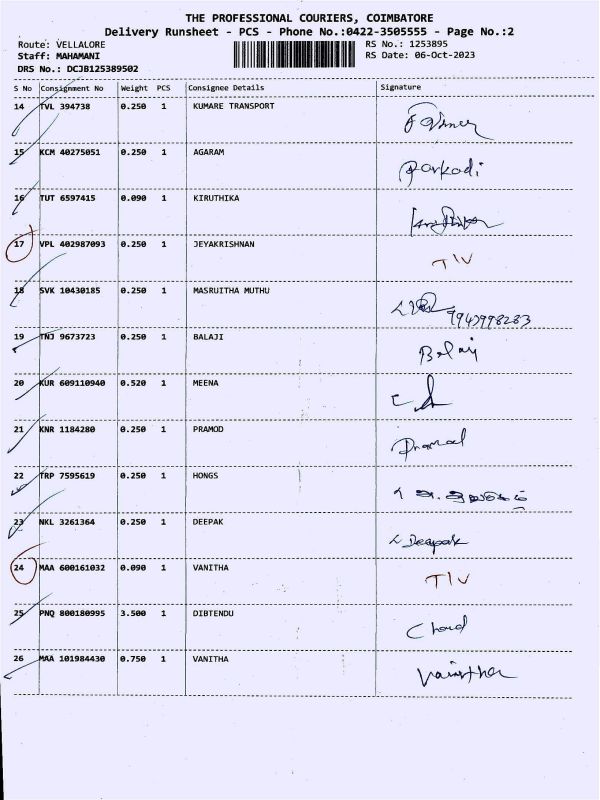 THE PROFESSIONAL COURIERS, COIMBATORE
Delivery Runsheet - PCS - Phone No.:0422-3505555 - Page No.:2
Route: VELLALORE RS No.: 1253895
Staff: MAHAMANI RS Date: 06-Oct-2023
DRS No.: DCJB125389502
S No Consignment No Weight PCS Consignee Details Signature
14 TVL 394738 0.250 1 KUMARE TRANSPORT
15 KCM 40275051 0.250 1 AGARAM Parkodi
16 TUT 6597415 0.090 1 KIRUTHIKA
17 VPL 402987093 0.250 1 JEYAKRISHNAN TIV
18 SVK 10430185 0.250 1 MASRUITHA MUTHU 9943998283
19 TNJ 9673723 0.250 1 BALAJI Balaji
20 KUR 609110940 0.520 1 MEENA
21 KNR 1184280 0.250 1 PRAMOD Pramod
22 TRP 7595619 0.250 1 HONGS
23 NKL 3261364 0.250 1 DEEPAK Deepak
24 MAA 600161032 0.090 1 VANITHA TIV
25 PNQ 800180995 3.500 1 DIBTENDU Chand
26 MAA 101984430 0.750 1 VANITHA Vanitha